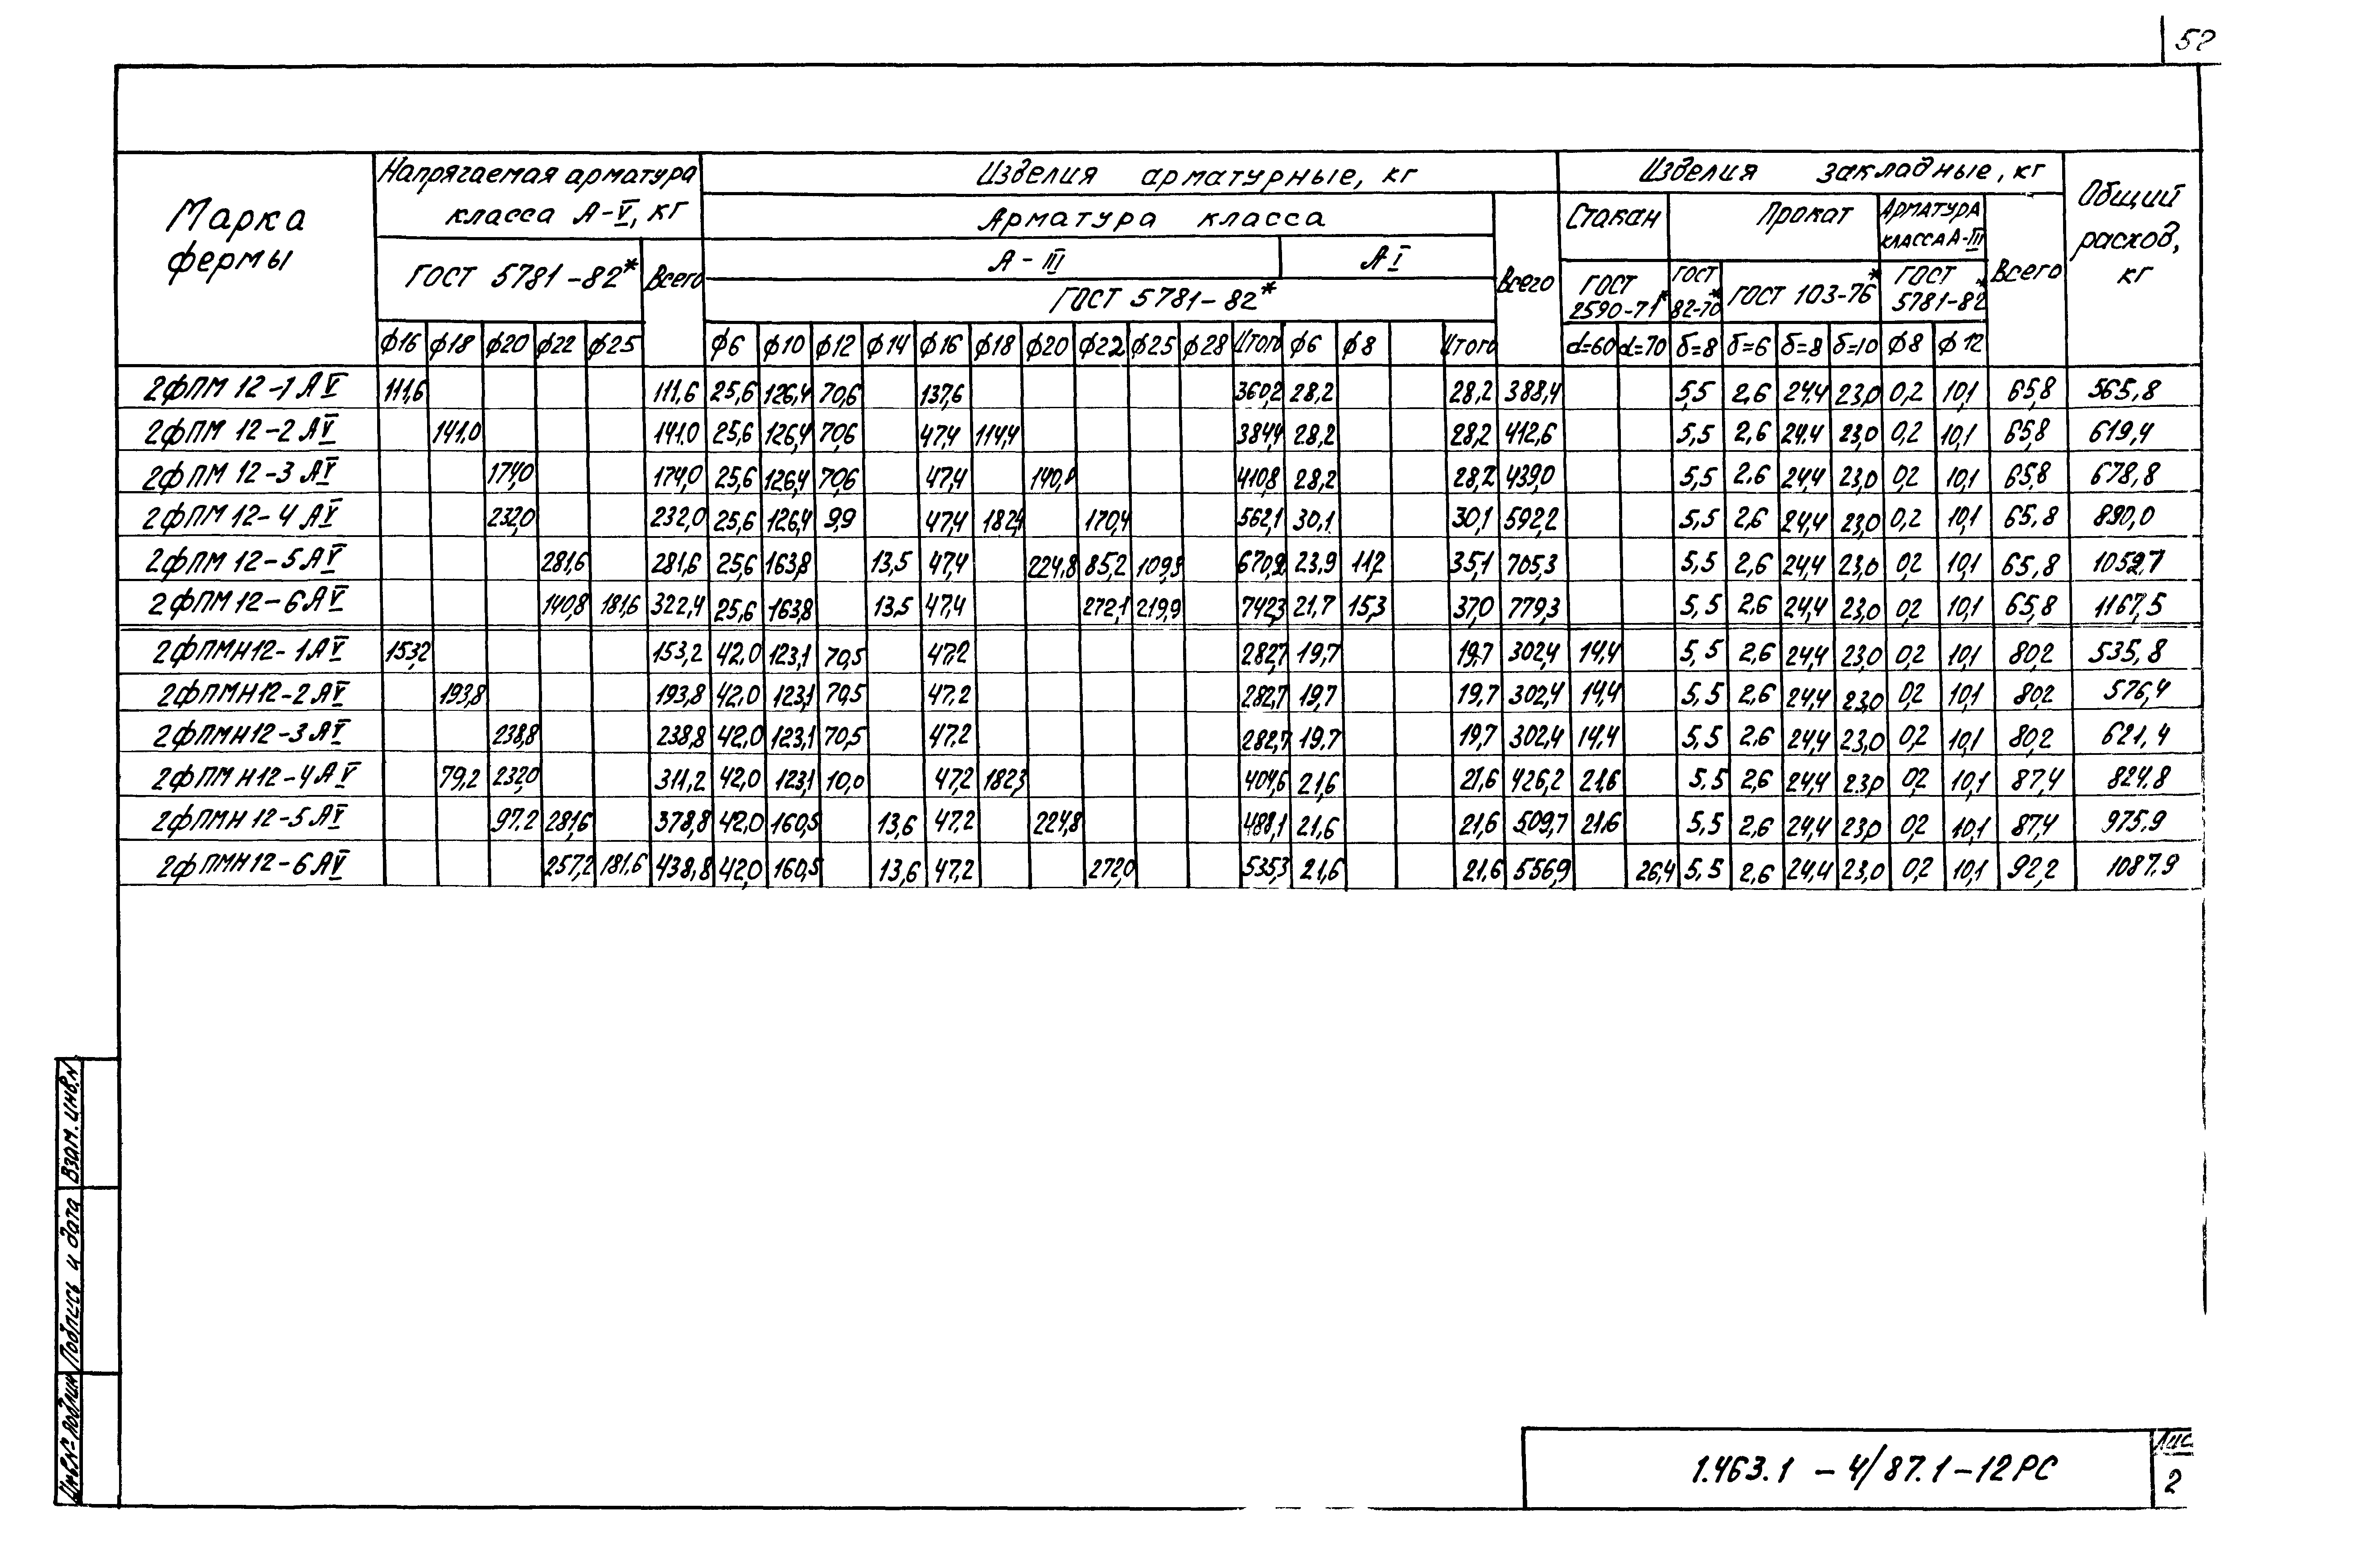 52
Марка фермы
Напрягаемая арматура класса А-V, кг
Изделия арматурные, кг
Изделия закладные, кг
Общий расход, кг
Арматура класса
Всего
Стакан
Прокат
Арматура класса А-III
Всего
ГОСТ 5781-82*
Всего
А-III
А I
ГОСТ 5781-82*
ГОСТ 2590-71*
ГОСТ 82-70*
ГОСТ 103-76*
ГОСТ 5781-82*
ф16 ф18 ф20 ф22 ф25 ф6 ф10 ф12 ф14 ф16 ф18 ф20 ф22 ф25 ф28 Итого ф6 ф8 Итого d=60 d=70 δ=8 δ=6 δ=8 δ=10 ф8 ф12
2ФПМ 12-1 АV 111,6 111,6 25,6 126,4 70,6 137,6 360,2 28,2 28,2 388,4 5,5 2,6 24,4 23,0 0,2 10,1 65,8 565,8
2ФПМ 12-2 АV 141,0 141,0 25,6 126,4 70,6 47,4 114,4 384,4 28,2 28,2 412,6 5,5 2,6 24,4 23,0 0,2 10,1 65,8 619,4
2ФПМ 12-3 АV 174,0 174,0 25,6 126,4 70,6 47,4 140,8 410,8 28,2 28,2 439,0 5,5 2,6 24,4 23,0 0,2 10,1 65,8 678,8
2ФПМ 12-4 АV 232,0 232,0 25,6 126,4 9,9 47,4 182,4 170,4 562,1 30,1 30,1 592,2 5,5 2,6 24,4 23,0 0,2 10,1 65,8 890,0
2ФПМ 12-5 АV 281,6 281,6 25,6 163,8 13,5 47,4 224,8 85,2 109,9 670,2 23,9 11,2 35,1 705,3 5,5 2,6 24,4 23,0 0,2 10,1 65,8 1052,7
2ФПМ 12-6 АV 140,8 181,6 322,4 25,6 163,8 13,5 47,4 272,1 219,9 742,3 21,7 15,3 37,0 779,3 5,5 2,6 24,4 23,0 0,2 10,1 65,8 1167,5
2ФПМН12-1 АV 153,2 153,2 42,0 123,1 70,5 47,2 282,7 19,7 19,7 302,4 14,4 5,5 2,6 24,4 23,0 0,2 10,1 80,2 535,8
2ФПМН12-2 АV 193,8 193,8 42,0 123,1 70,5 47,2 282,7 19,7 19,7 302,4 14,4 5,5 2,6 24,4 23,0 0,2 10,1 80,2 576,4
2ФПМН12-3 АV 238,8 238,8 42,0 123,1 70,5 47,2 282,7 19,7 19,7 302,4 14,4 5,5 2,6 24,4 23,0 0,2 10,1 80,2 621,4
2ФПМН12-4 АV 79,2 232,0 311,2 42,0 123,1 10,0 47,2 182,3 404,6 21,6 21,6 426,2 21,6 5,5 2,6 24,4 23,0 0,2 10,1 87,4 824,8
2ФПМН12-5 АV 97,2 281,6 378,8 42,0 160,5 13,6 47,2 224,8 488,1 21,6 21,6 509,7 21,6 5,5 2,6 24,4 23,0 0,2 10,1 87,4 975,9
2ФПМН12-6 АV 257,2 181,6 438,8 42,0 160,5 13,6 47,2 272,0 535,3 21,6 21,6 556,9 26,4 5,5 2,6 24,4 23,0 0,2 10,1 92,2 1087,9
Взам. инв.N
Подпись и дата
Инв.№ подлин
1.463.1 - 4/87.1-12РС
Лис
2